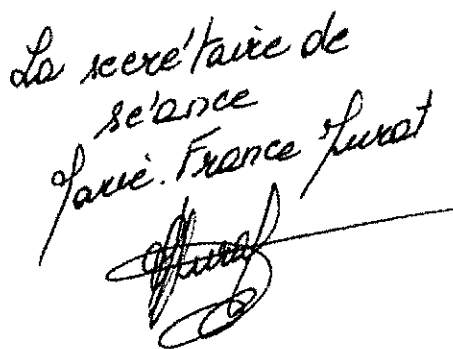 La secrétaire de
séance
Marie-France Murat